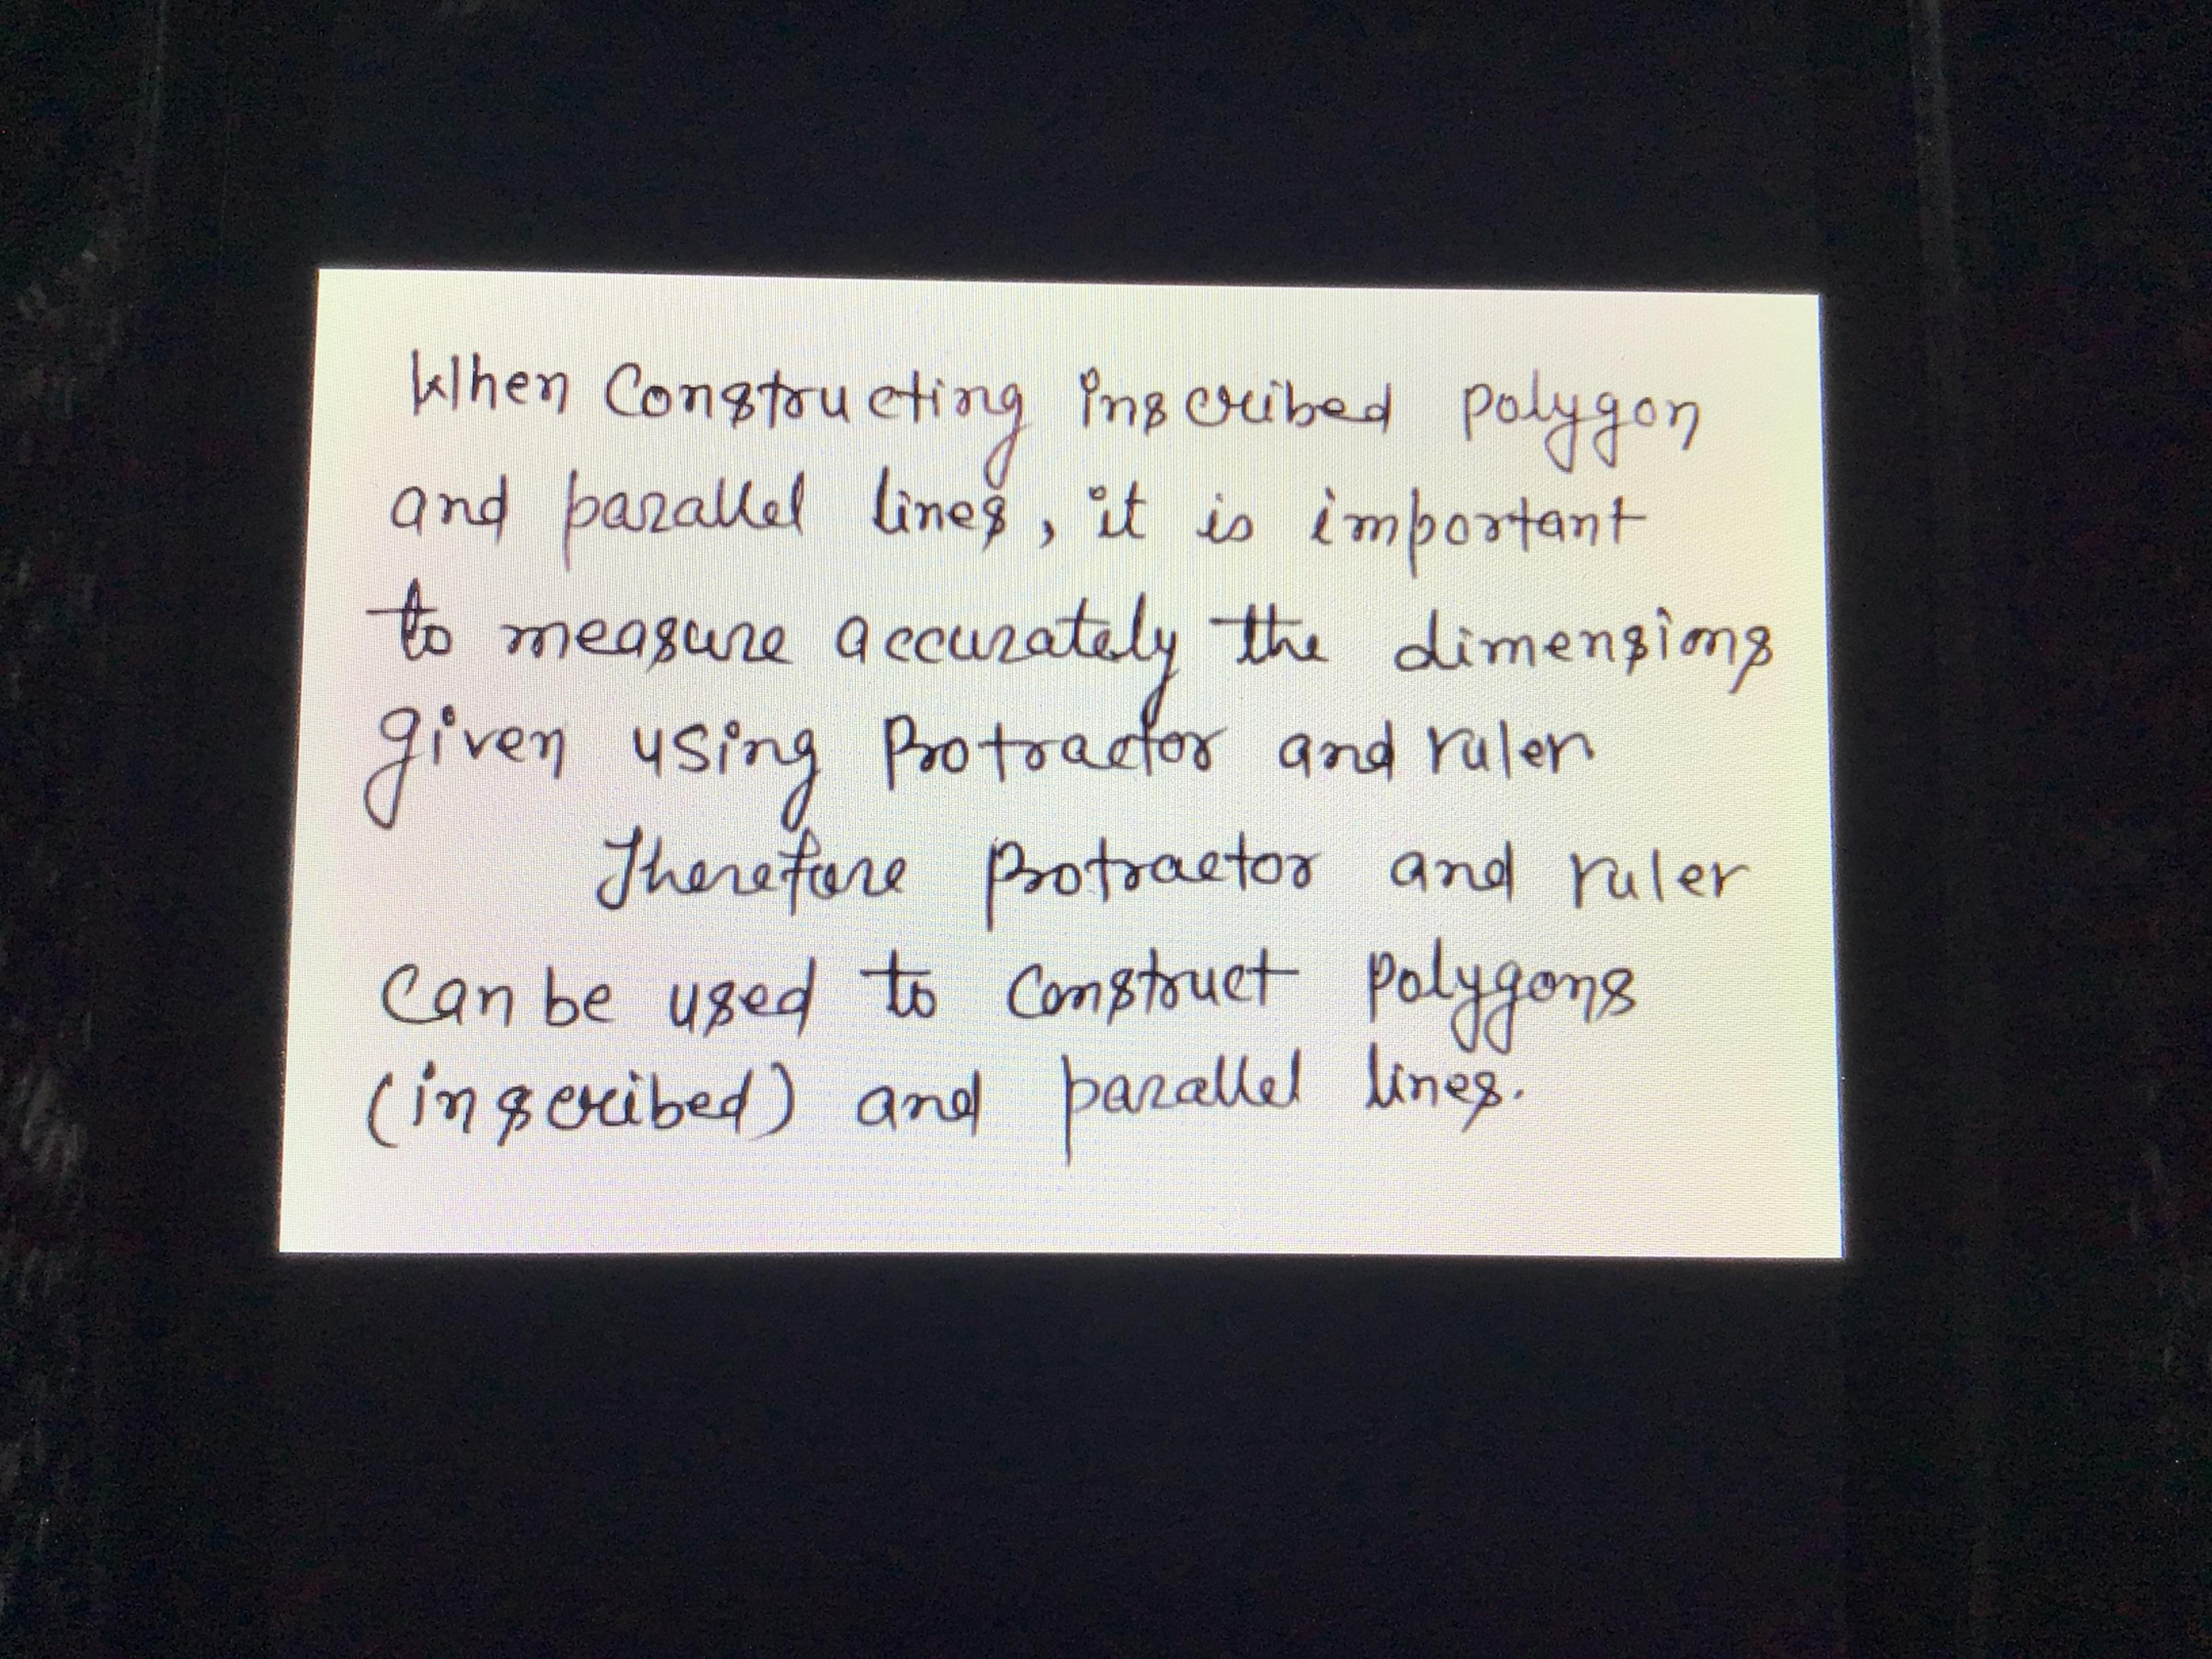 When Constructing inscribed polygon
and parallel lines, it is important
to measure accurately the dimensions
given using Protractor and ruler
Therefore Protractor and ruler
Can be used to Construct Polygons
(inscribed) and parallel lines.